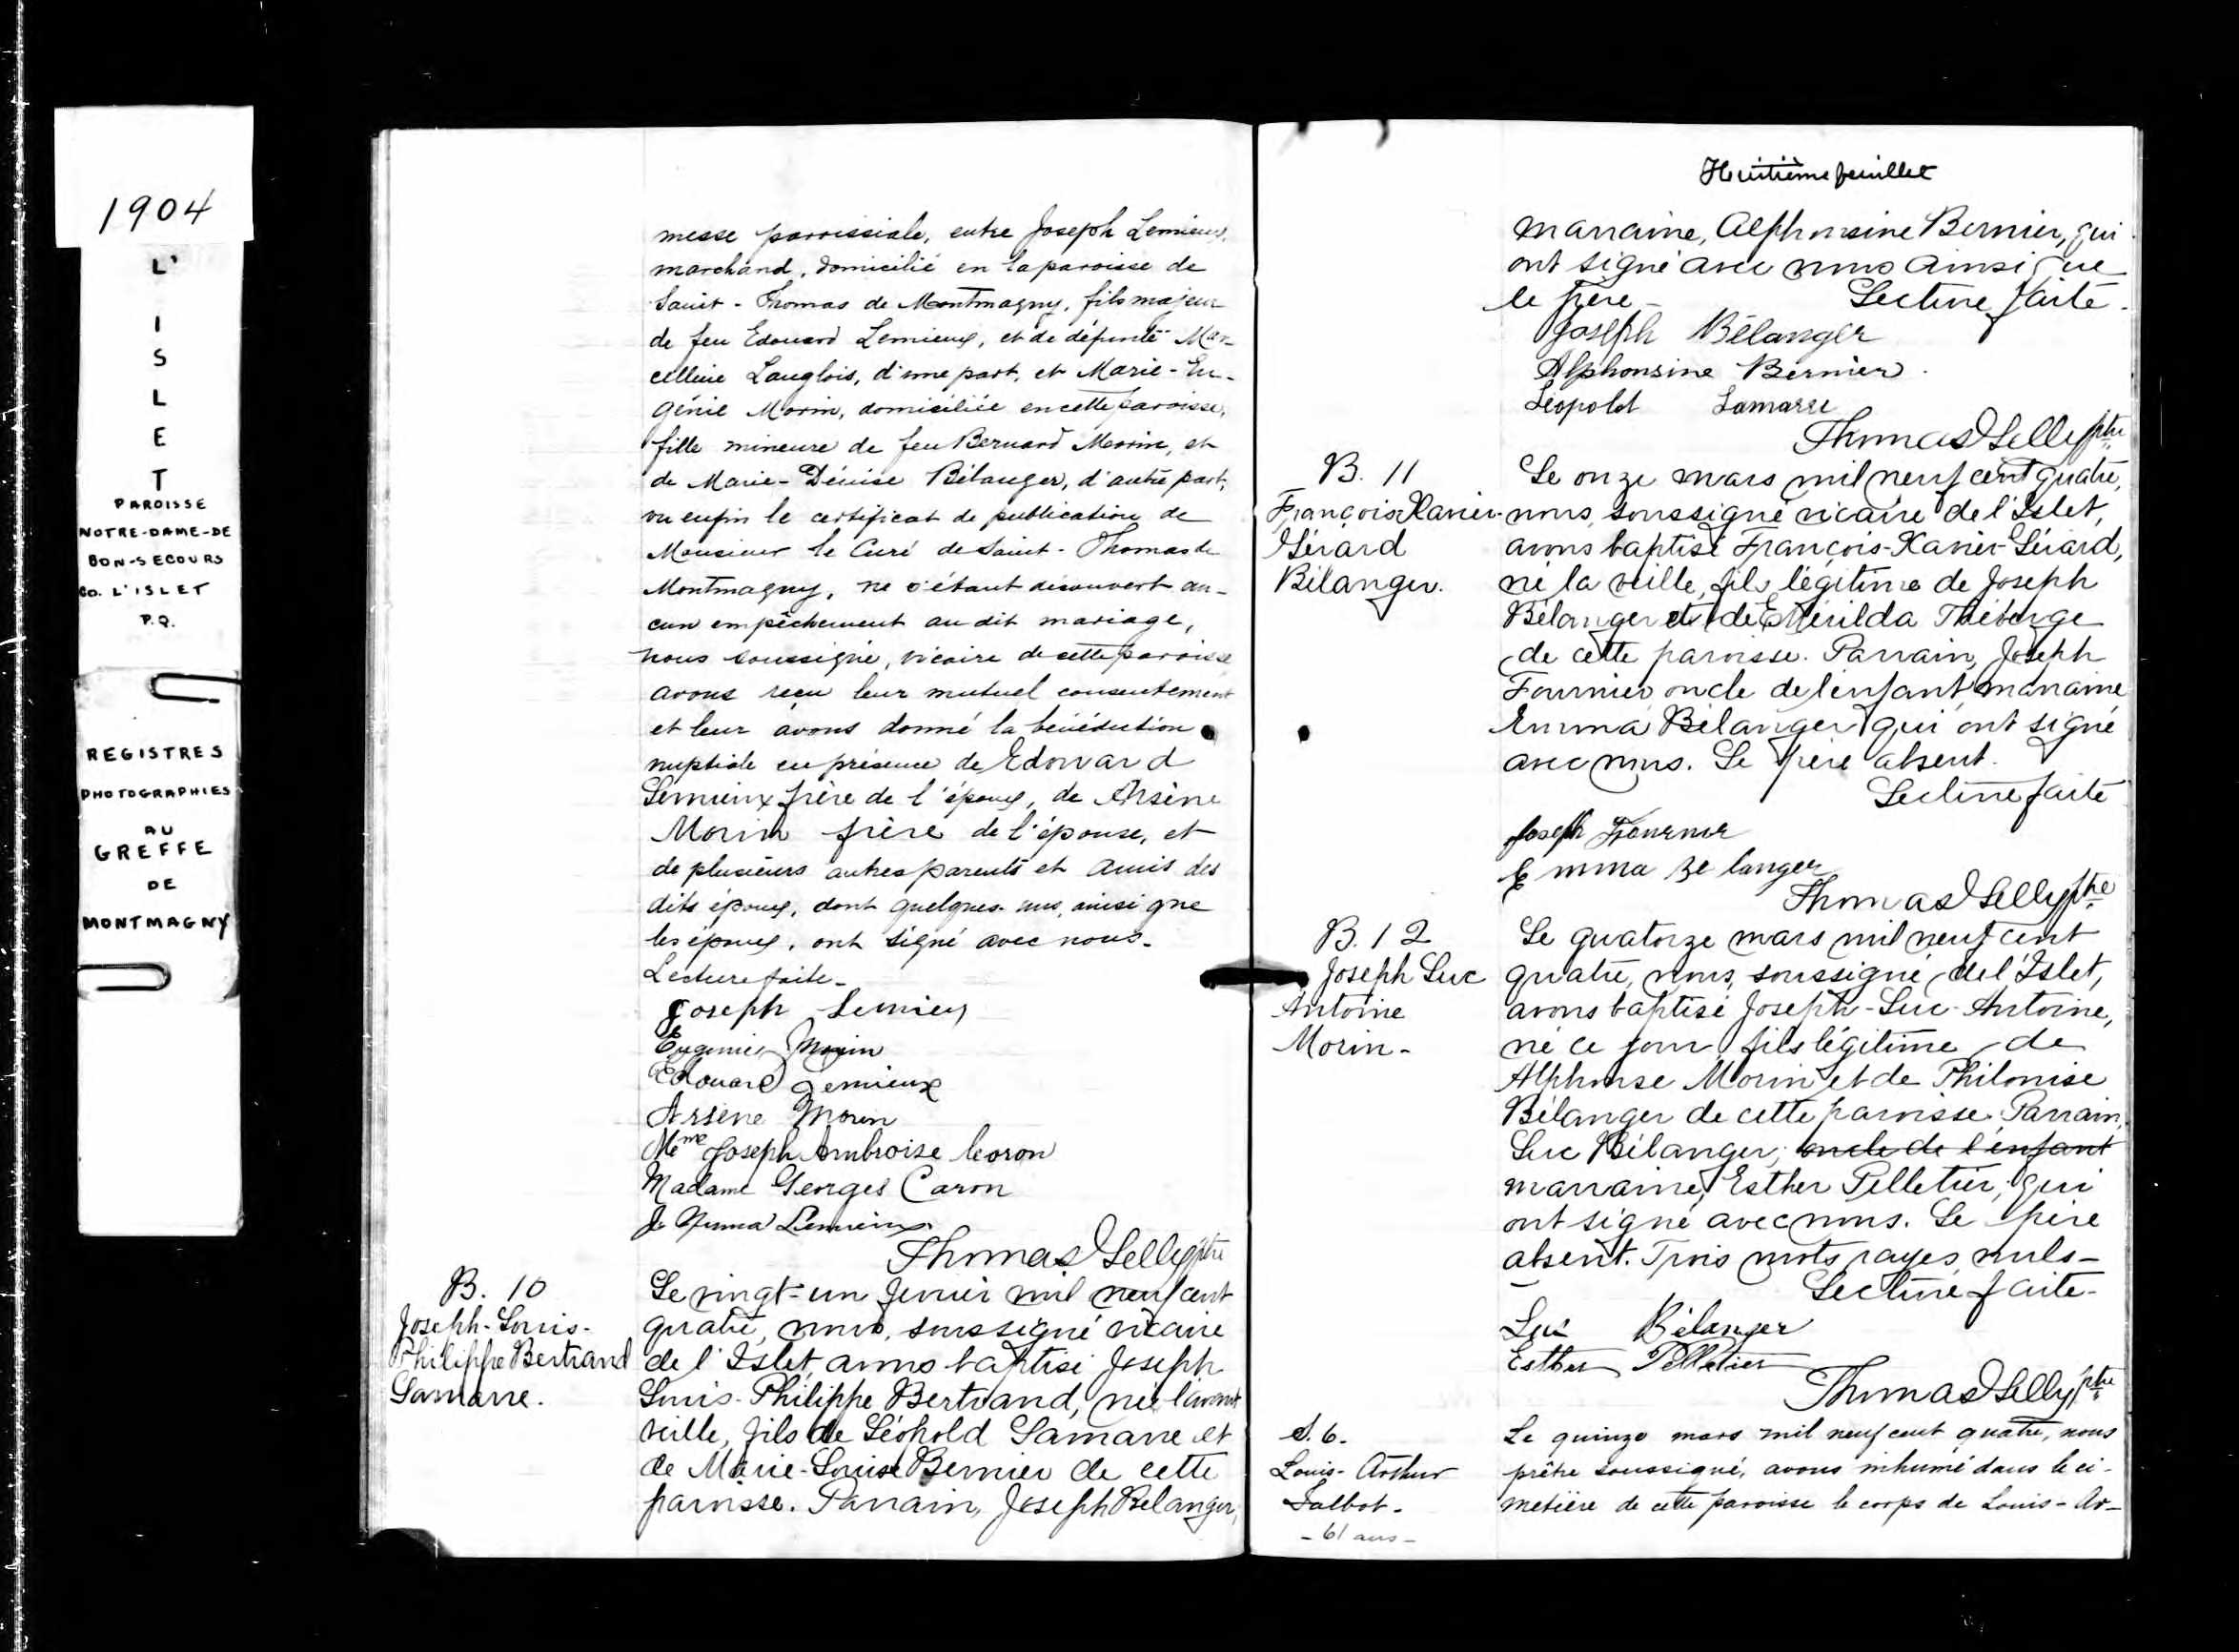 1904
L'
I
S
L
E
T
PAROISSE
NOTRE-DAME-DE
BON-SECOURS
CO. L'ISLET
P.Q.
REGISTRES
PHOTOGRAPHIES
AU
GREFFE
DE
MONTMAGNY
messe paroissiale, entre Joseph Lemieux,
marchand, domicilié en la paroisse de
Saint-Thomas de Montmagny, fils majeur
de feu Edouard Lemieux, et de défunte Mar-
celline Langlois, d'une part, et Marie-Eu-
génie Morin, domiciliée en cette paroisse,
fille mineure de feu Bernard Morin, et
de Marie-Dénise Bélanger, d'autre part,
vu enfin le certificat de publication de
Monsieur le Curé de Saint-Thomas de
Montmagny, ne s'étant découvert au-
cun empêchement au dit mariage,
nous soussigné, vicaire de cette paroisse
avons reçu leur mutuel consentement
et leur avons donné la bénédiction
nuptiale en présence de Edouard
Lemieux frère de l'époux, de Arsène
Morin frère de l'épouse, et
de plusieurs autres parents et amis des
dits époux, dont quelques-uns, ainsi que
les époux, ont signé avec nous-
Lecture faite-
Joseph Lemieux
Eugenie Morin
Edouard Lemieux
Arsène Morin
Mme Joseph Ambroise Caron
Madame Georges Caron
J. Numa Lemieux
Thomas Lelly ptre
B. 10
Joseph-Louis-
Philippe Bertrand
Lamarre.
Le vingt-un février mil neuf cent
quatre, nous, soussigné vicaire
de l'Islet, avons baptisé Joseph
Louis-Philippe Bertrand, né l'avant
veille, fils de Léopold Lamarre et
de Marie-Louise Bernier de cette
paroisse. Parrain, Joseph Bélanger,
Huitième feuillet
marraine, Alphonsine Bernier, qui
ont signé avec nous ainsi que
le père- Lecture faite.
Joseph Bélanger
Alphonsine Bernier.
Léopold Lamarre
Thomas Lelly ptre
B. 11
François-Xavier-
Gérard
Bélanger.
Le onze mars mil neuf cent quatre,
nous, soussigné vicaire de l'Islet,
avons baptisé François-Xavier-Gérard,
né la veille, fils légitime de Joseph
Bélanger et de Mérilda Théberge
de cette paroisse. Parrain, Joseph
Fournier, oncle de l'enfant, marraine
Emma Bélanger qui ont signé
avec nous. Le père absent.
Lecture faite
Joseph Fournier
Emma Belanger
Thomas Lelly ptre
B. 12
Joseph Luc
Antoine
Morin-
Le quatorze mars mil neuf cent
quatre, nous, soussigné, de l'Islet,
avons baptisé Joseph-Luc-Antoine,
né ce jour, fils légitime de
Alphonse Morin et de Philonise
Bélanger de cette paroisse. Parrain,
Luc Bélanger, oncle de l'enfant
marraine, Esther Pelletier, qui
ont signé avec nous. Le père
absent. Trois mots rayés nuls-
Lecture faite-
Luc Bélanger
Esther Pelletier
Thomas Lelly ptre
S. 6.
Louis-Arthur
Talbot-
- 61 ans -
Le quinze mars mil neuf cent quatre, nous
prêtre soussigné, avons inhumé dans le ci-
metière de cette paroisse le corps de Louis-Ar-